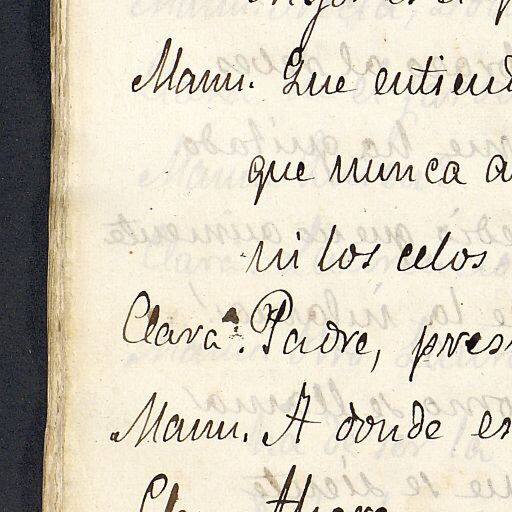 Manu. Que entiend
que nunca a
ni los celos
Clara. Padre, pres
Manu. A donde es